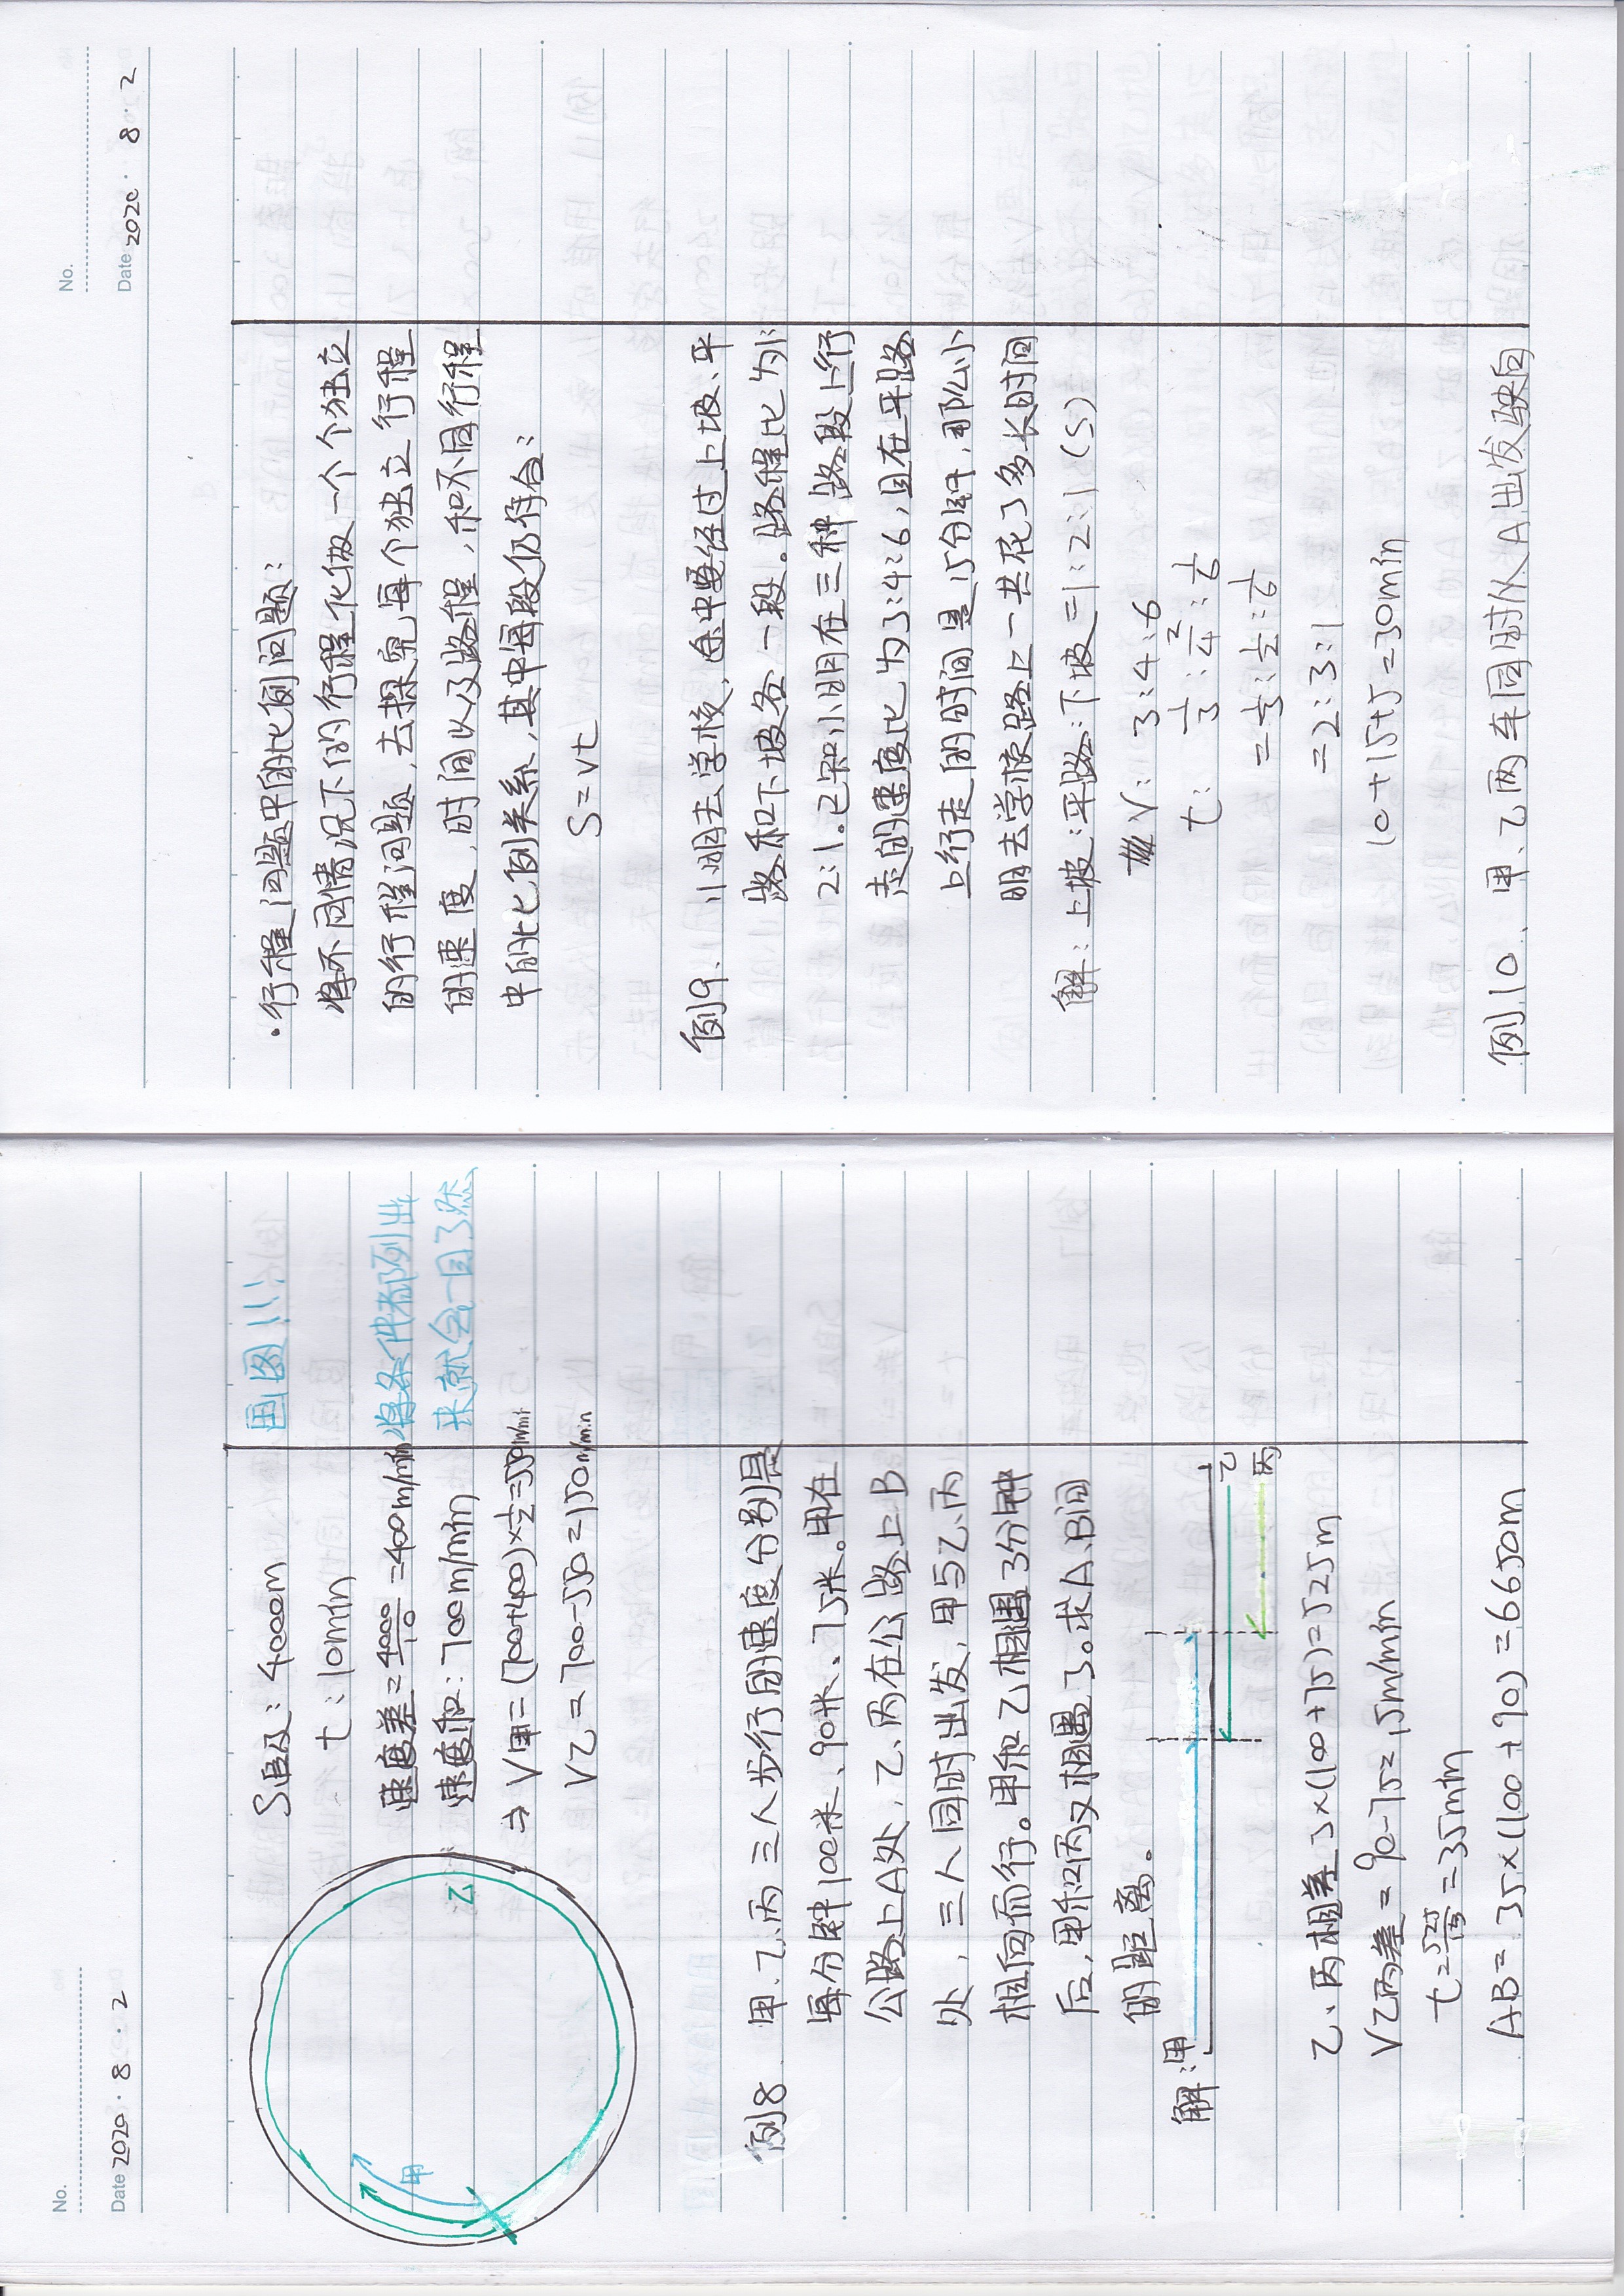 No.
Date 2020 · 8 · 2
画图!!!
S追及：4000m
t：10min
速度差=4000/10=400m/min
将条件都列出
速度和：700m/min
来就会一目了然
⇒ V甲=(700+400)×1/2=550m/min
V乙=700-550=150m/min
甲
乙
例8 甲、乙、丙三人步行的速度分别是
每分钟100米、90米、75米。甲在
公路上A处，乙、丙在公路上B
处，三人同时出发，甲与乙、丙
相向而行。甲和乙相遇3分钟
后，甲和丙又相遇了。求A、B间
的距离。
解：甲
乙
丙
乙、丙相差 3×(100+75)=525m
V乙丙差=90-75=15m/min
t=525/15=35min
AB=35×(100+90)=6650m
No.
Date 2020 · 8 · 2
·行程问题中的比例问题：
将不同情况下的行程化做一个个独立
的行程问题，去探究每个独立行程
的速度，时间以及路程，和不同行程
中的比例关系，其中每段仍符合：
S=vt
例9、小明去学校，途中要经过上坡、平
路和下坡各一段。路程比为1:
2:1.已知小明在三种路段上行
走的速度比为3:4:6，且在平路
上行走的时间是15分钟，那么小
明去学校路上一共花了多长时间
解：上坡：平路：下坡=1:2:1(S)
V： 3:4:6
t： 1/3:2/4:1/6
=1/3:1/2:1/6
=2:3:1
10+15+5=30min
例10、甲、乙两车同时从A出发驶向